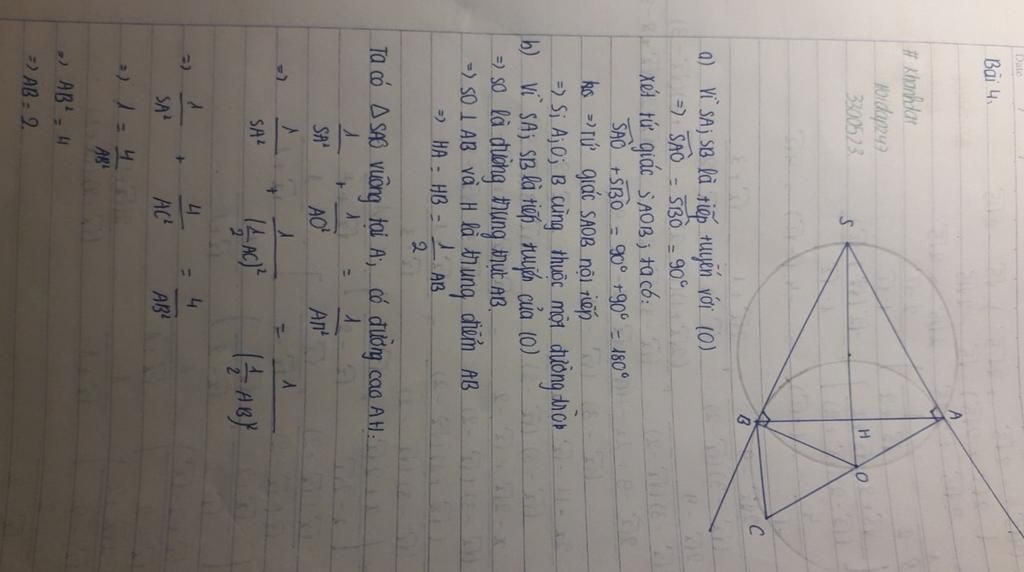 Bài 4.
# Khanhdan
3200523
S
A
H
O
B
C
a) Vì SA; SB là tiếp tuyến với (O)
=> SAO = SBO = 90°
xét tứ giác SAOB, ta có:
SAO + SBO = 90° + 90° = 180°
=> Tứ giác SAOB nội tiếp
=> S; A; O; B cùng thuộc một đường tròn
b) Vì SA; SB là tiếp tuyến của (O)
=> SO là đường trung trực AB.
=> SO ⊥ AB và H là trung điểm AB
=> HA = HB = 1/2 AB
Ta có △ SAO vuông tại A, có đường cao AH:
1/SA² + 1/AO² = 1/AH²
=> 1/SA² + 1/(1/2 AC)² = 1/(1/2 AB)²
=> 1/SA² + 4/AC² = 4/AB²
=> 1 = 4/AB²
=> AB² = 4
=> AB = 2